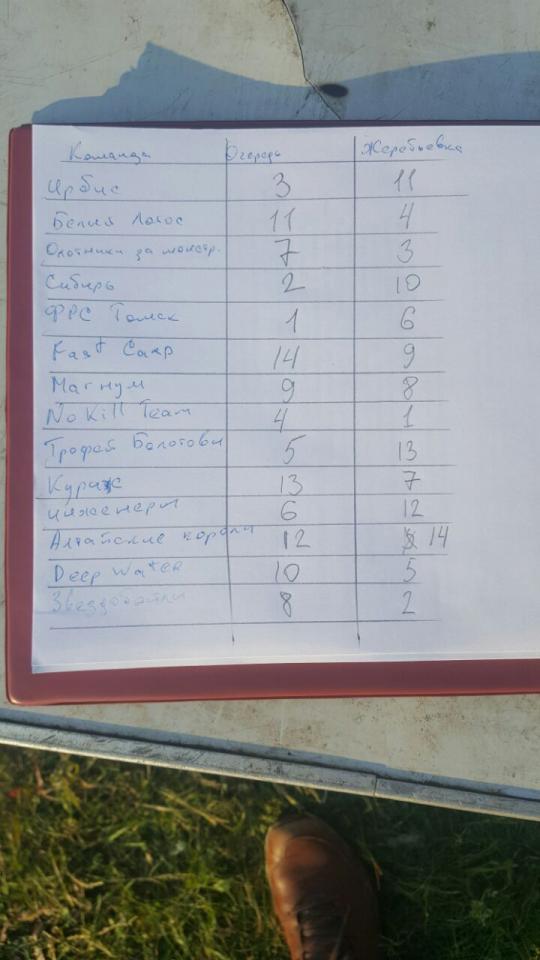 Команда Очередь Жеребьевка
Ирбис 3 11
Белый Лотос 11 4
Охотники за монстр. 7 3
Сибирь 2 10
ФРС Томск 1 6
Fast Carp 14 9
Магнум 9 8
No Kill Team 4 1
Трофей Болотовы 5 13
Кураж 13 7
инженеры 6 12
Алтайские короли 12 14
Deep water 10 5
8 2